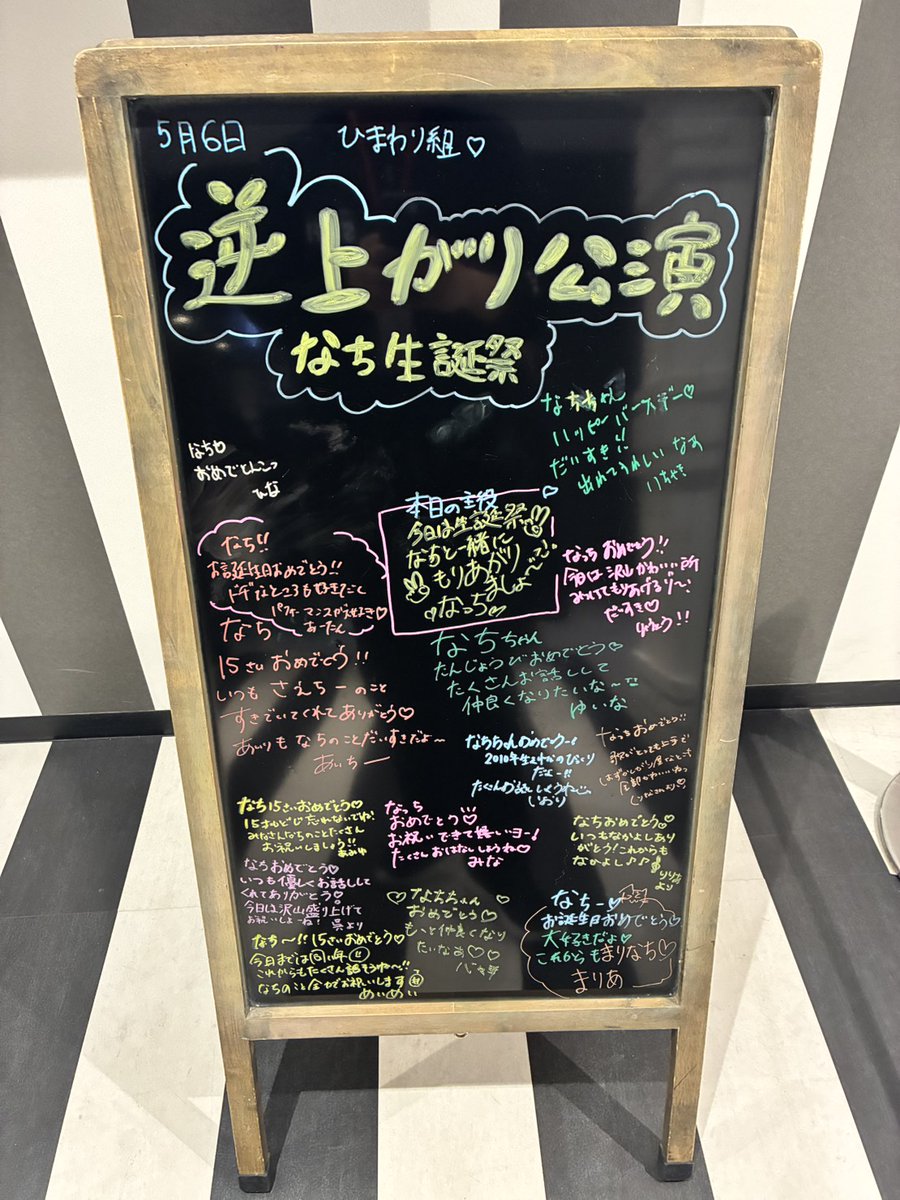 5月6日
ひまわり組♡
逆上がり公演
なち生誕祭
なちちゃん♡
ハッピーバースデー
だいすき!!
出れてうれしいなぁ
なち♡
おめでとんこつ
ひな
本日の主役
今日は生誕祭
なちと一緒に
もりあがり
ましょ〜
♡なっち♡
なち!!
お誕生日おめでとう!!
ドジなところも好きだし
パフォーマンスが
あーたん
なっち おめでとう!!
今日は沢山かわいい所
みせてもりあげるり〜!
だーすき♡
りょうう!!
なち
15さい おめでとう!!
いつも さえちーのこと
すきでいてくれてありがとう♡
あいりも なちのことだいすきだよ〜
あいちー
なちちゃん
たんじょうびおめでとう♡
たくさんお話しして
仲良くなりたいな〜
ゆいな
なちちゃんおめでとうー!
2010年生まれ
だよー!!
たくさんお話ししてうれしい
しおり
なっちおめでとう!!
歌がとっても上手で
はずかしがり屋なとこ
全部かわいいねっ
なち15さいおめでとう♡
15さいもどじ忘れないでね!
みなさんなちのことたくさん
お祝いしましょう!!
なっち
おめでとう♡
お祝いできて嬉しいヨー!
たくさんおはなししようね♡
みな
なちおめでとう♡
いつもなかよしあり
がとう!これからも
なかよし♪♪
りりな
より
なちおめでとう♡
いつも優しくお話しして
くれてありがとう!
今日は沢山盛り上げて
お祝いしよーね! 昊より
♡なちちゃん♡
おめでとう♡
もっと仲良くなり
たいなあ♡♡
なちー♡
お誕生日おめでとう♡
大好きだよ♡
これからもまりなち♡
まりあ
なち〜!!15さいおめでとう♡
今日までは同い年!!
これからもたくさん話そうね〜!!
なちのこと全力でお祝いします
めいめい